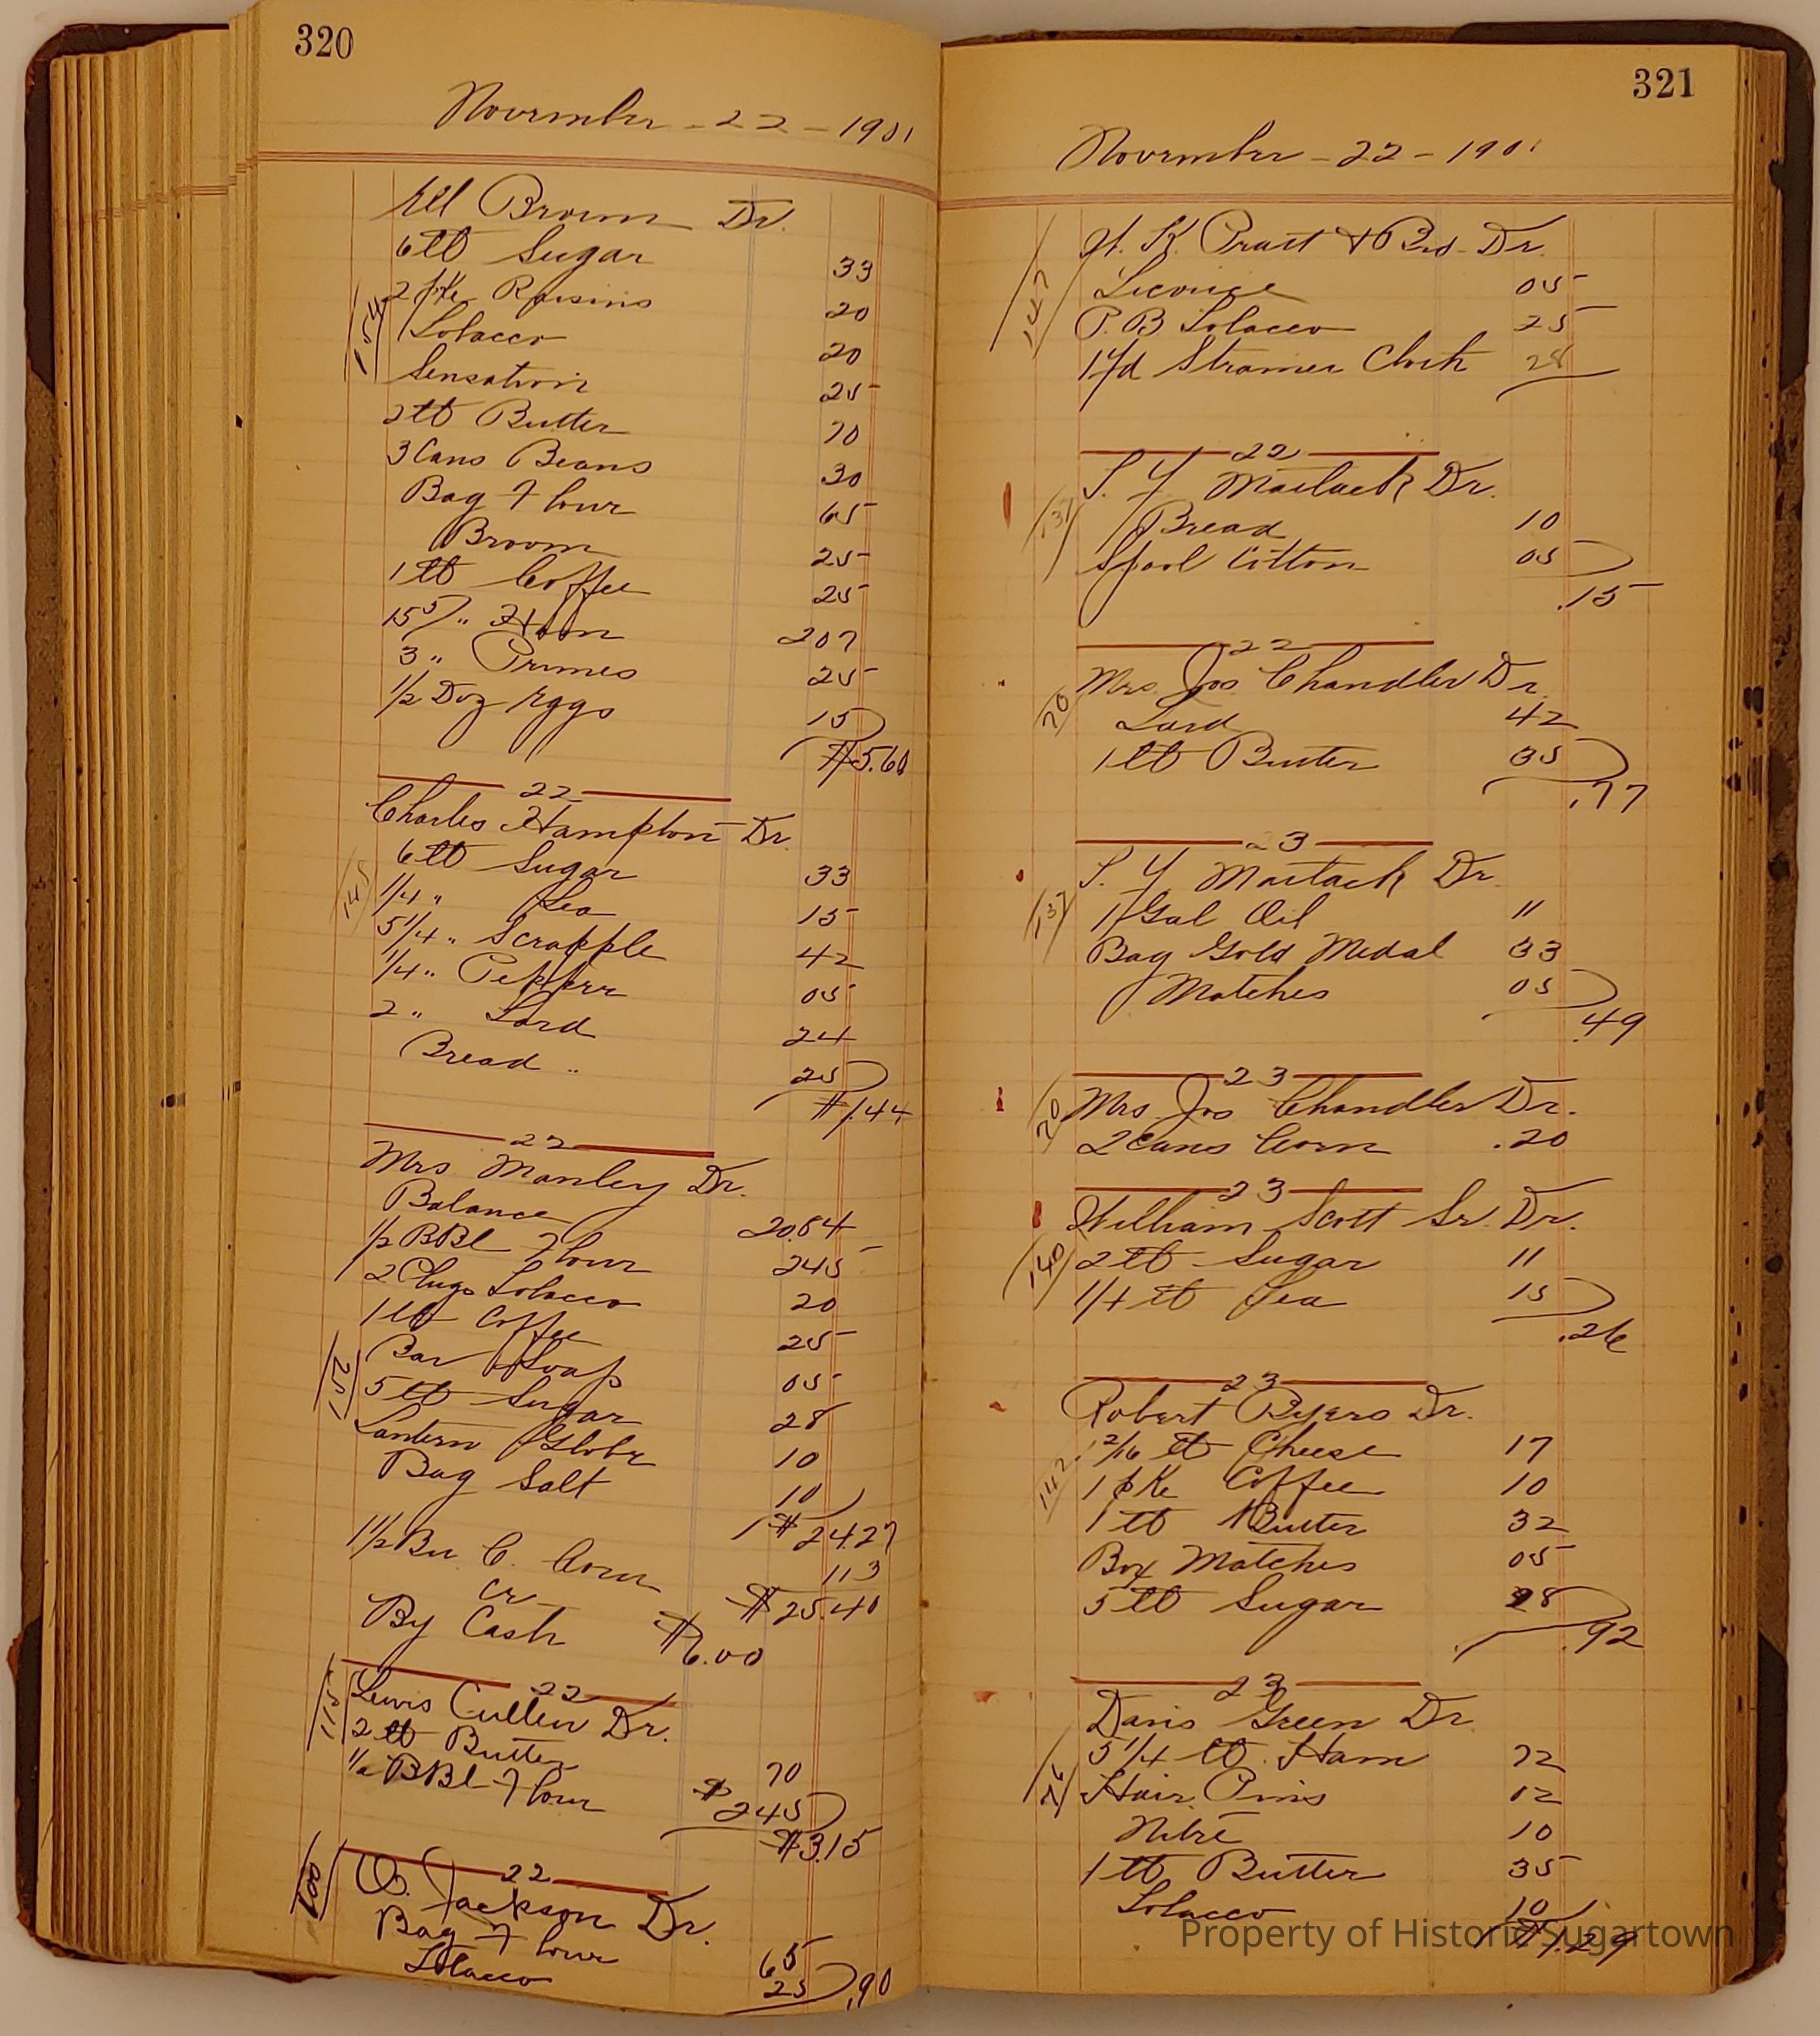 320
November - 22 - 1901
Ell Brown Dr.
6 lb Sugar 33
2 pke Raisins 20
154
Tobacco 20
Sensation 25
2 lb Butter 70
3 Cans Beans 30
Bag Flour 65
Broom 25
1 lb Coffee 25
15 5/ " Ham 207
3 " Prunes 25
1/2 Doz Eggs 15
$5.60
22
Charles Hampton Dr.
6 lb Sugar 33
145
1/4 " Tea 15
5 1/4 " Scrapple 42
1/4 " Pepper 05
2 " Lard 24
Bread " 25
$1.44
22
Mrs Manley Dr.
Balance 20.84
1/2 BBl Flour 245
2 Plugs Tobacco 20
1 lb Coffee 25
152
Bar Soap 05
5 lb Sugar 28
Lantern Globe 10
Bag Salt 10
$24.27
1 1/2 Bu C. Corn 113
Cr $25.40
By Cash $6.00
22
115
Lewis Cullen Dr.
2 lb Butter 70
1/2 BBl Flour $ 245
$3.15
22
100
O. Jackson Dr.
Bag Flour 65
Tobacco 25 .90
321
November - 22 - 1901
H. K. Pratt & Bro. Dr.
147
Licorice 05
P. B Tobacco 25
1 yd Strainer Cloth 28
22
S. Y Matlack Dr.
137
Bread 10
Spool Cotton 05
.15
22
Mrs. Jos Chandler Dr.
70
Lard 42
1 lb Butter 35
.77
23
S. Y Matlack Dr.
137
1 Gal Oil 11
Bag Gold Medal 33
Matches 05
.49
23
70
Mrs. Jos Chandler Dr.
2 Cans Corn .20
23
William Scott Sr. Dr.
140
2 lb Sugar 11
1/4 lb Tea 15
.26
23
Robert Byers Dr.
1 2/16 lb Cheese 17
142
1 pke Coffee 10
1 lb Butter 32
Box Matches 05
5 lb Sugar 28
.92
23
Davis Green Dr
5 1/4 lb. Ham 72
76
Hair Pins 12
Nitre 10
1 lb Butter 35
Tobacco 10
$1.29
Property of Historic Sugartown